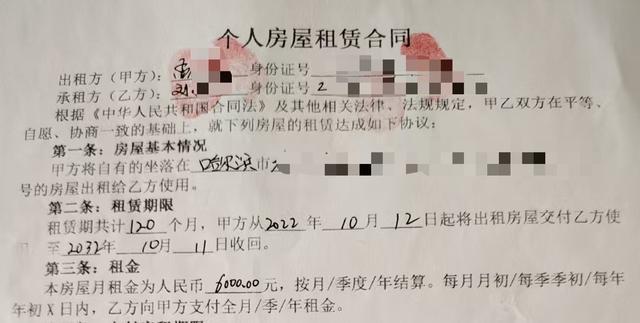 个人房屋租赁合同
出租方(甲方): 身份证号
承租方(乙方): 刘 身份证号 2
根据《中华人民共和国合同法》及其他相关法律、法规规定,甲乙双方在平等、
自愿、协商一致的基础上,就下列房屋的租赁达成如下协议:
第一条:房屋基本情况
甲方将自有的坐落在哈尔滨市
号的房屋出租给乙方使用。
第二条:租赁期限
租赁期共计120个月,甲方从2022年10月12日起将出租房屋交付乙方使
至2032年10月11日收回。
第三条:租金
本房屋月租金为人民币6000.00元,按月/季度/年结算。每月月初/每季季初/每年
年初X日内,乙方向甲方支付全月/季/年租金。